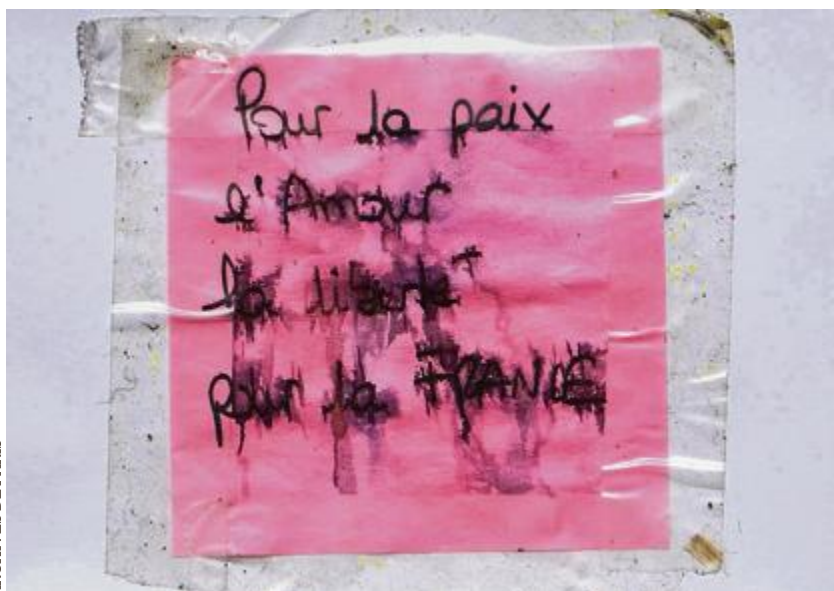 Pour la paix
l'Amour
la liberté
pour la FRANCE